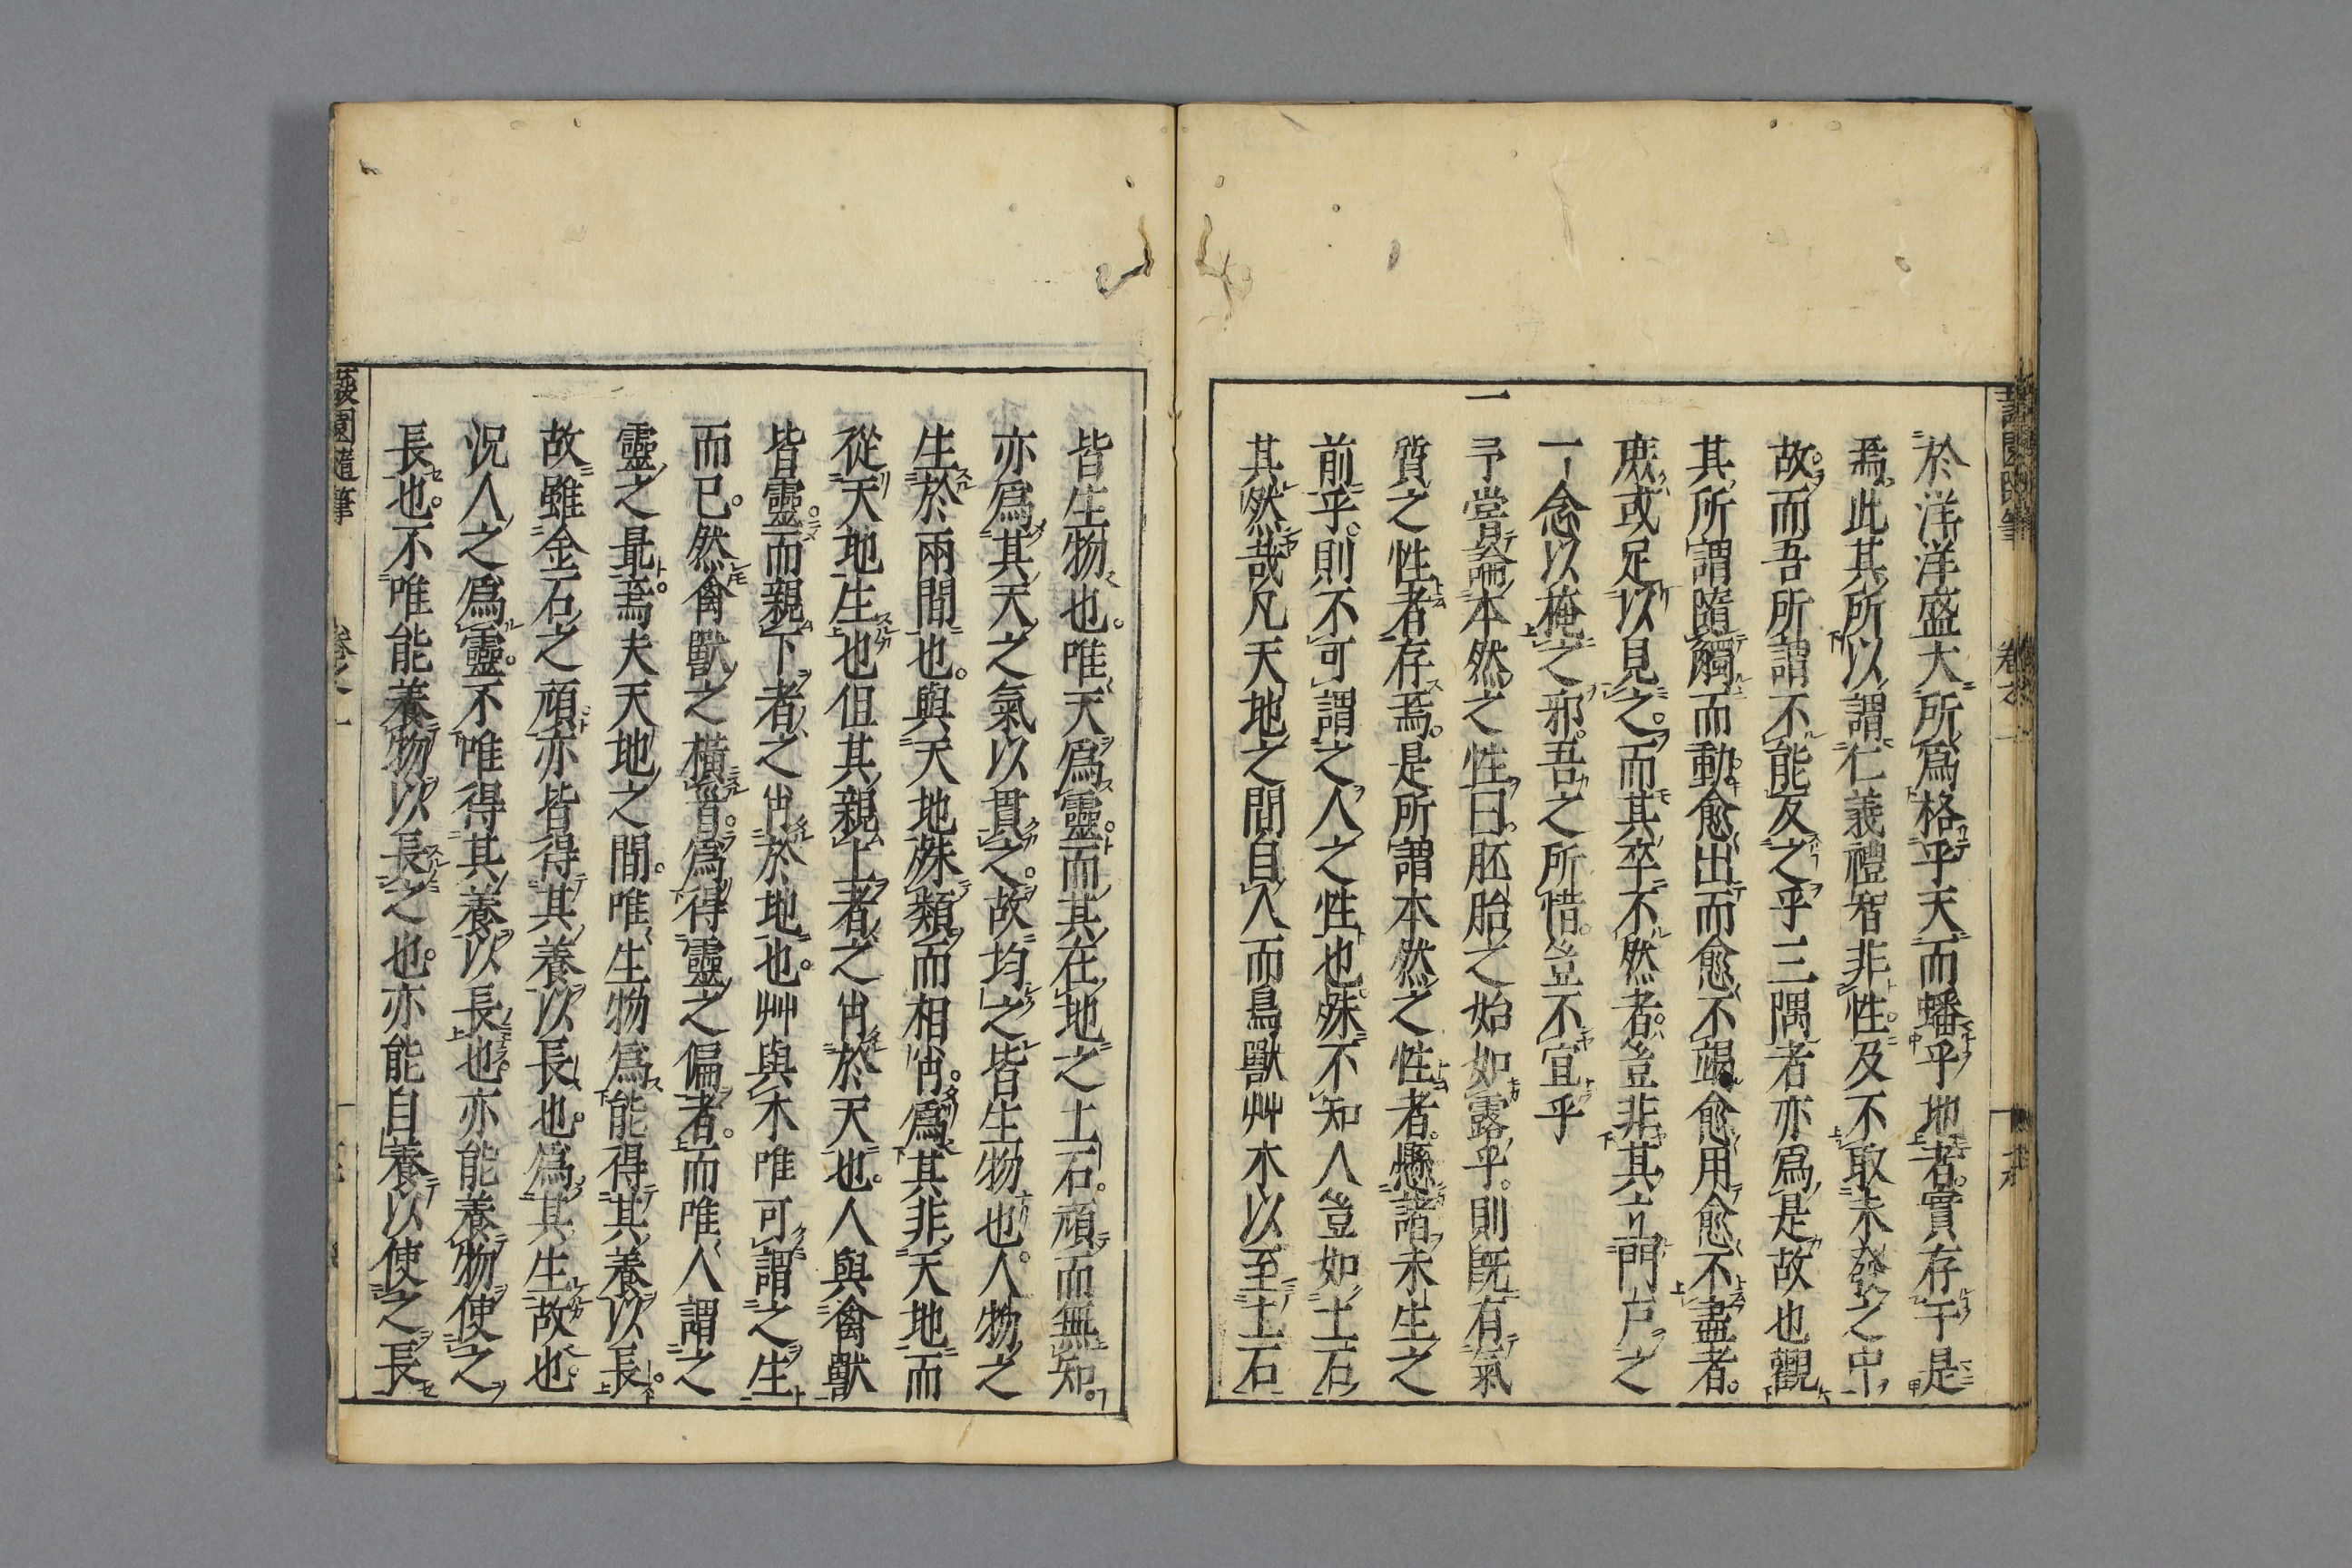 於洋洋盛大所爲格乎天而蟠乎地者實存于是
焉此其所以謂仁義禮智非性及不取未發之中
故而吾所謂不能反之乎三隅者亦爲是故也觀
其所謂隨觸而動愈出而愈不竭愈用愈不盡者
庶或足以見之而其卒不然者豈非其立門戶之
一念以掩之邪吾之所惜豈不宜乎
一
予嘗論本然之性曰胚胎之始如露乎則既有氣
質之性者存焉是所謂本然之性者懸諸未生之
前乎則不可謂之人之性也殊不知人豈如土石
其然哉凡天地之間自人而鳥獸艸木以至土石
皆生物也唯天爲靈而其在地之土石頑而無知
亦爲其天之氣以貫之故均之皆生物也人物之
生於兩間也與天地殊類而相肖爲其非天地而
從天地生也但其親上者之肖於天也人與禽獸
皆靈而親下者之肖於地也艸與木唯可謂之生
而已然禽獸之橫首爲得靈之偏者而唯人謂之
靈之最焉夫天地之間唯生物爲能得其養以長
故雖金石之頑亦皆得其養以長也爲其生故也
況人之爲靈不唯得其養以長也亦能養物使之
長也不唯能養物以長之也亦能自養以使之長
蘐園隨筆 卷之一